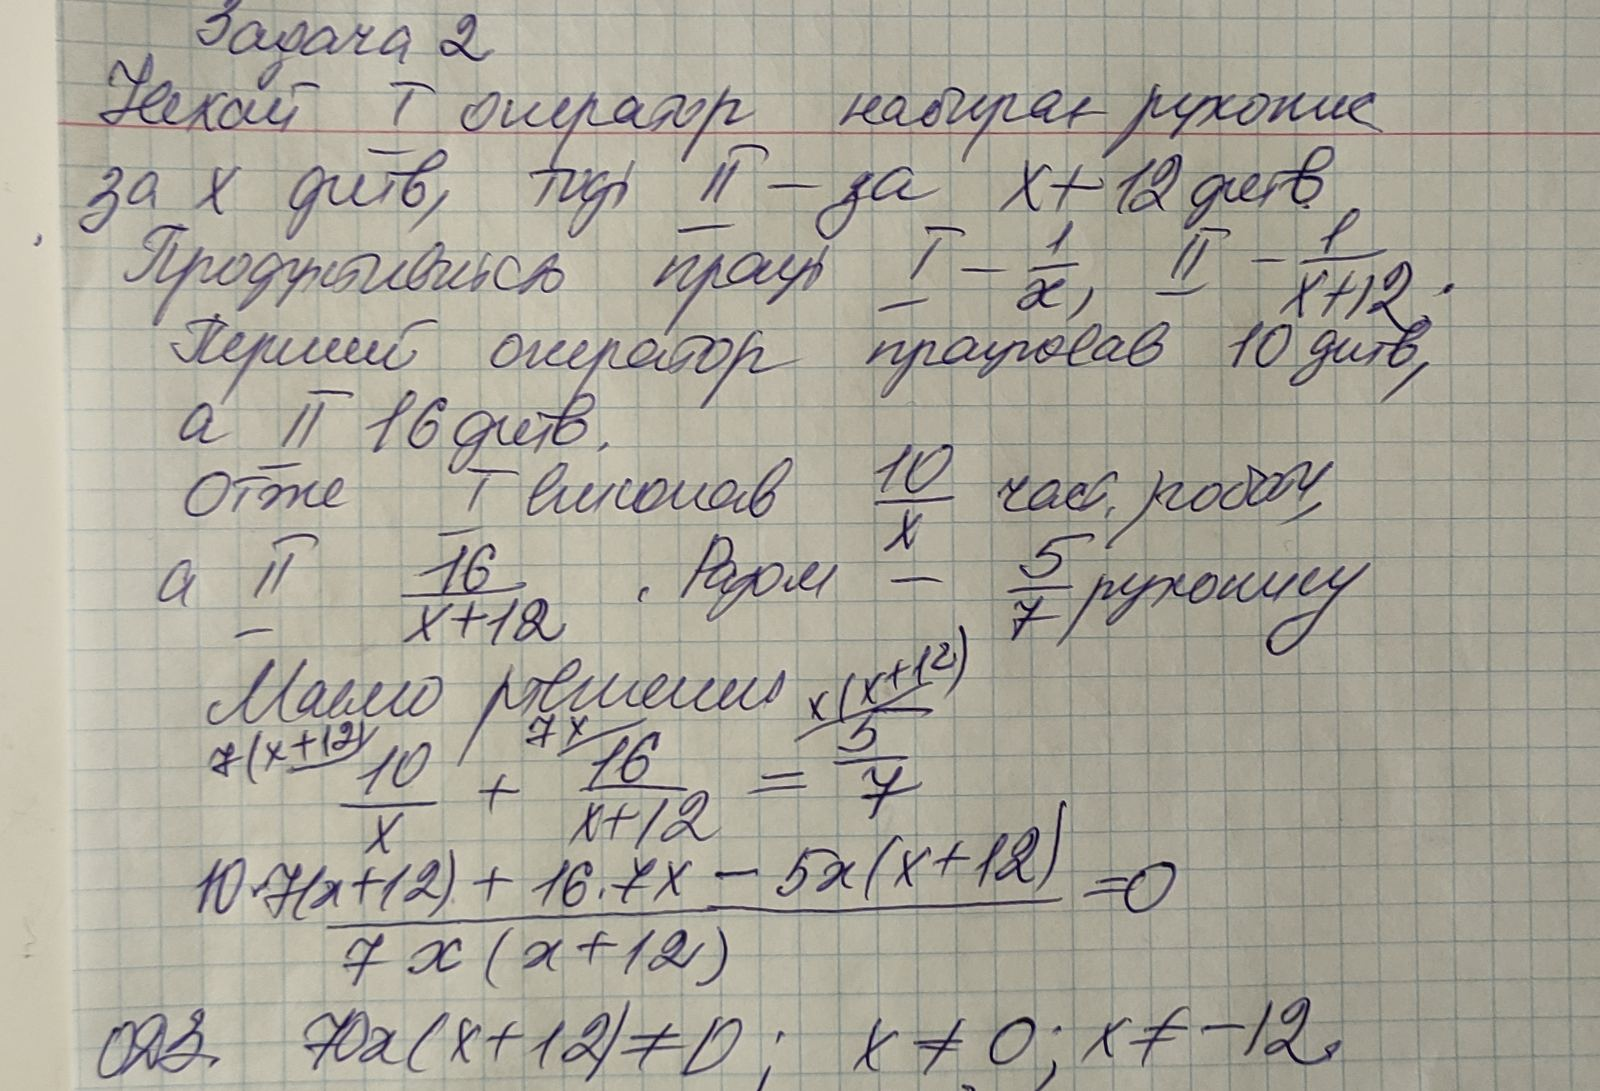 Задача 2
Нехай І оператор набирає рукопис
за x днів, тоді ІІ – за x+12 днів.
Продуктивність праці І – 1/x, ІІ – 1/(x+12).
Перший оператор працював 10 днів,
а ІІ 16 днів.
Отже І виконав 10/x част. роботи,
а ІІ 16/(x+12). Разом – 5/7 рукопису
Маємо рівняння
7(x+12) 7x x(x+12)
10/x + 16/(x+12) = 5/7
(10·7(x+12) + 16·7x – 5x(x+12))/(7x(x+12)) = 0
ОДЗ. 70x(x+12)≠0; x≠0; x≠–12.